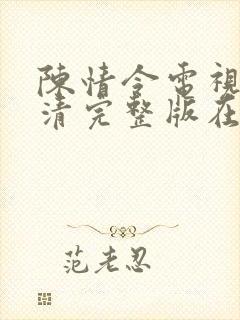 陳情令電視
清完整版在
范老忍